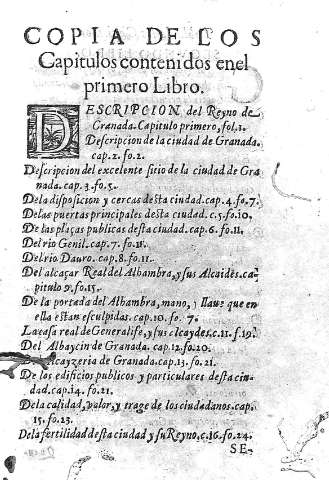 COPIA DE LOS
Capitulos contenidos enel
primero Libro.
DESCRIPCION del Reyno de
Granada. Capitulo primero, fol.1.
Descripcion de la ciudad de Granada.
cap. 2. fo. 2.
Descripcion del excelente sitio de la ciudad de Gra
nada. cap. 3. fo. 5.
De la disposicion y cercas desta ciudad. cap. 4. fo. 7.
De las puertas principales desta ciudad. c. 5. fo. 10.
De las plaças publicas desta ciudad. cap. 6. fo. 11.
Del rio Genil. cap. 7. fo. 18.
Del rio Dauro. cap. 8. fo. 11.
Del alcaçar Real del Alhambra, y sus Alcaides. ca-
pitulo 9. fo. 15.
De la portada del Alhambra, mano, y llaue que en
ella estan esculpidas. cap. 10. fo. 7.
La casa real de Generalife, y sus alcaydes. c. 11. f. 19.
Del Albaycin de Granada. cap. 12. fo. 20.
alcayzeria de Granada. cap. 13. fo. 21.
De los edificios publicos y particulares desta ciu-
dad. cap. 14. fo. 21.
De la calidad, valor, y trage de los ciudadanos. cap.
15. fo. 23.
De la fertilidad desta ciudad y su Reyno. c. 16. fo. 24.
SE-